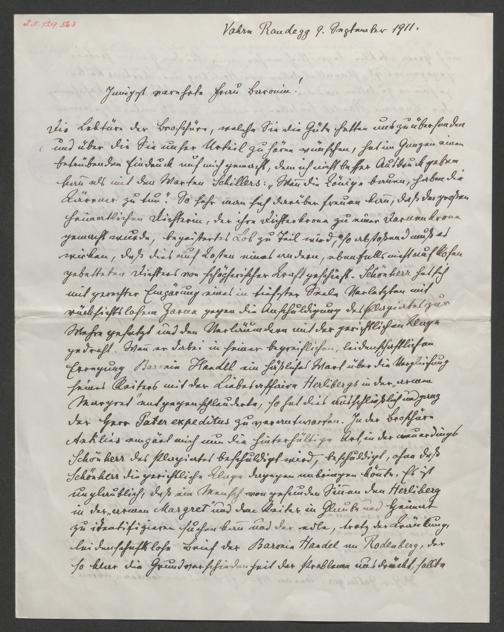 Vahrn Randegg 9. September 1911.
Innigst verehrte Frau Baronin!
Die Lektüre der Broschüre, welche Sie die Güte hatten uns zu übersenden
und über die Sie unser Urteil zu hören wünschen, hat im Ganzen einen
betrübenden Eindruck auf mich gemacht, dem ich nicht besser Ausdruck geben
kann als mit den Worten Schillers: „Wenn die Könige bauen, haben die
Kärrner zu tun! So sehr man sich darüber freuen kann, daß der großen
heimatlichen Dichterin, der ihre Dichterkrone zu einer Dornenkrone
gemacht wurde, begeistertes Lob zu Teil wird, so abstoßend muß es
wirken, daß dies auf Kosten eines andern, ebenfalls nicht auf Rosen
gebetteten Dichters von schöpferischer Kraft geschieht. Schönherr hat sich
mit gerechter Empörung eines in tiefster Seele Verletzten mit
rücksichtslosem Zorne gegen die Anschuldigung des Plagiates zur
Wehre gesetzt und den Verleumdern mit der gerichtlichen Klage
gedroht. Wenn er dabei in seiner begreiflichen, leidenschaftlichen
Erregung Baronin Handel ein häßliches Wort über die Vergleichung
seines Reiters mit der Liebesaffaire Herlibergs in der armen
Margret entgegenschleuderte, so hat dies ausschließlich und ganz
der Herr Pater expeditus zu verantworten. In der Broschüre
Nakliès empört mich nun die hinterhältige Art, in der neuerdings
Schönherr des Plagiates beschuldigt wird, beschuldigt, ohne daß
Schönherr die gerichtliche Klage dagegen anbringen könnte. Es ist
unglaublich, daß ein Mensch von gesunden Sinnen den Herliberg
in der armen Margret und den Reiter in Glaube und Heimat
zu identifizieren suchen kann und der edle, trotz der Kränkung,
leidenschaftslose Brief der Baronin Handel an Rodenberg, der
so klar die Grundverschiedenheit der Probleme ausdrückt, sollte